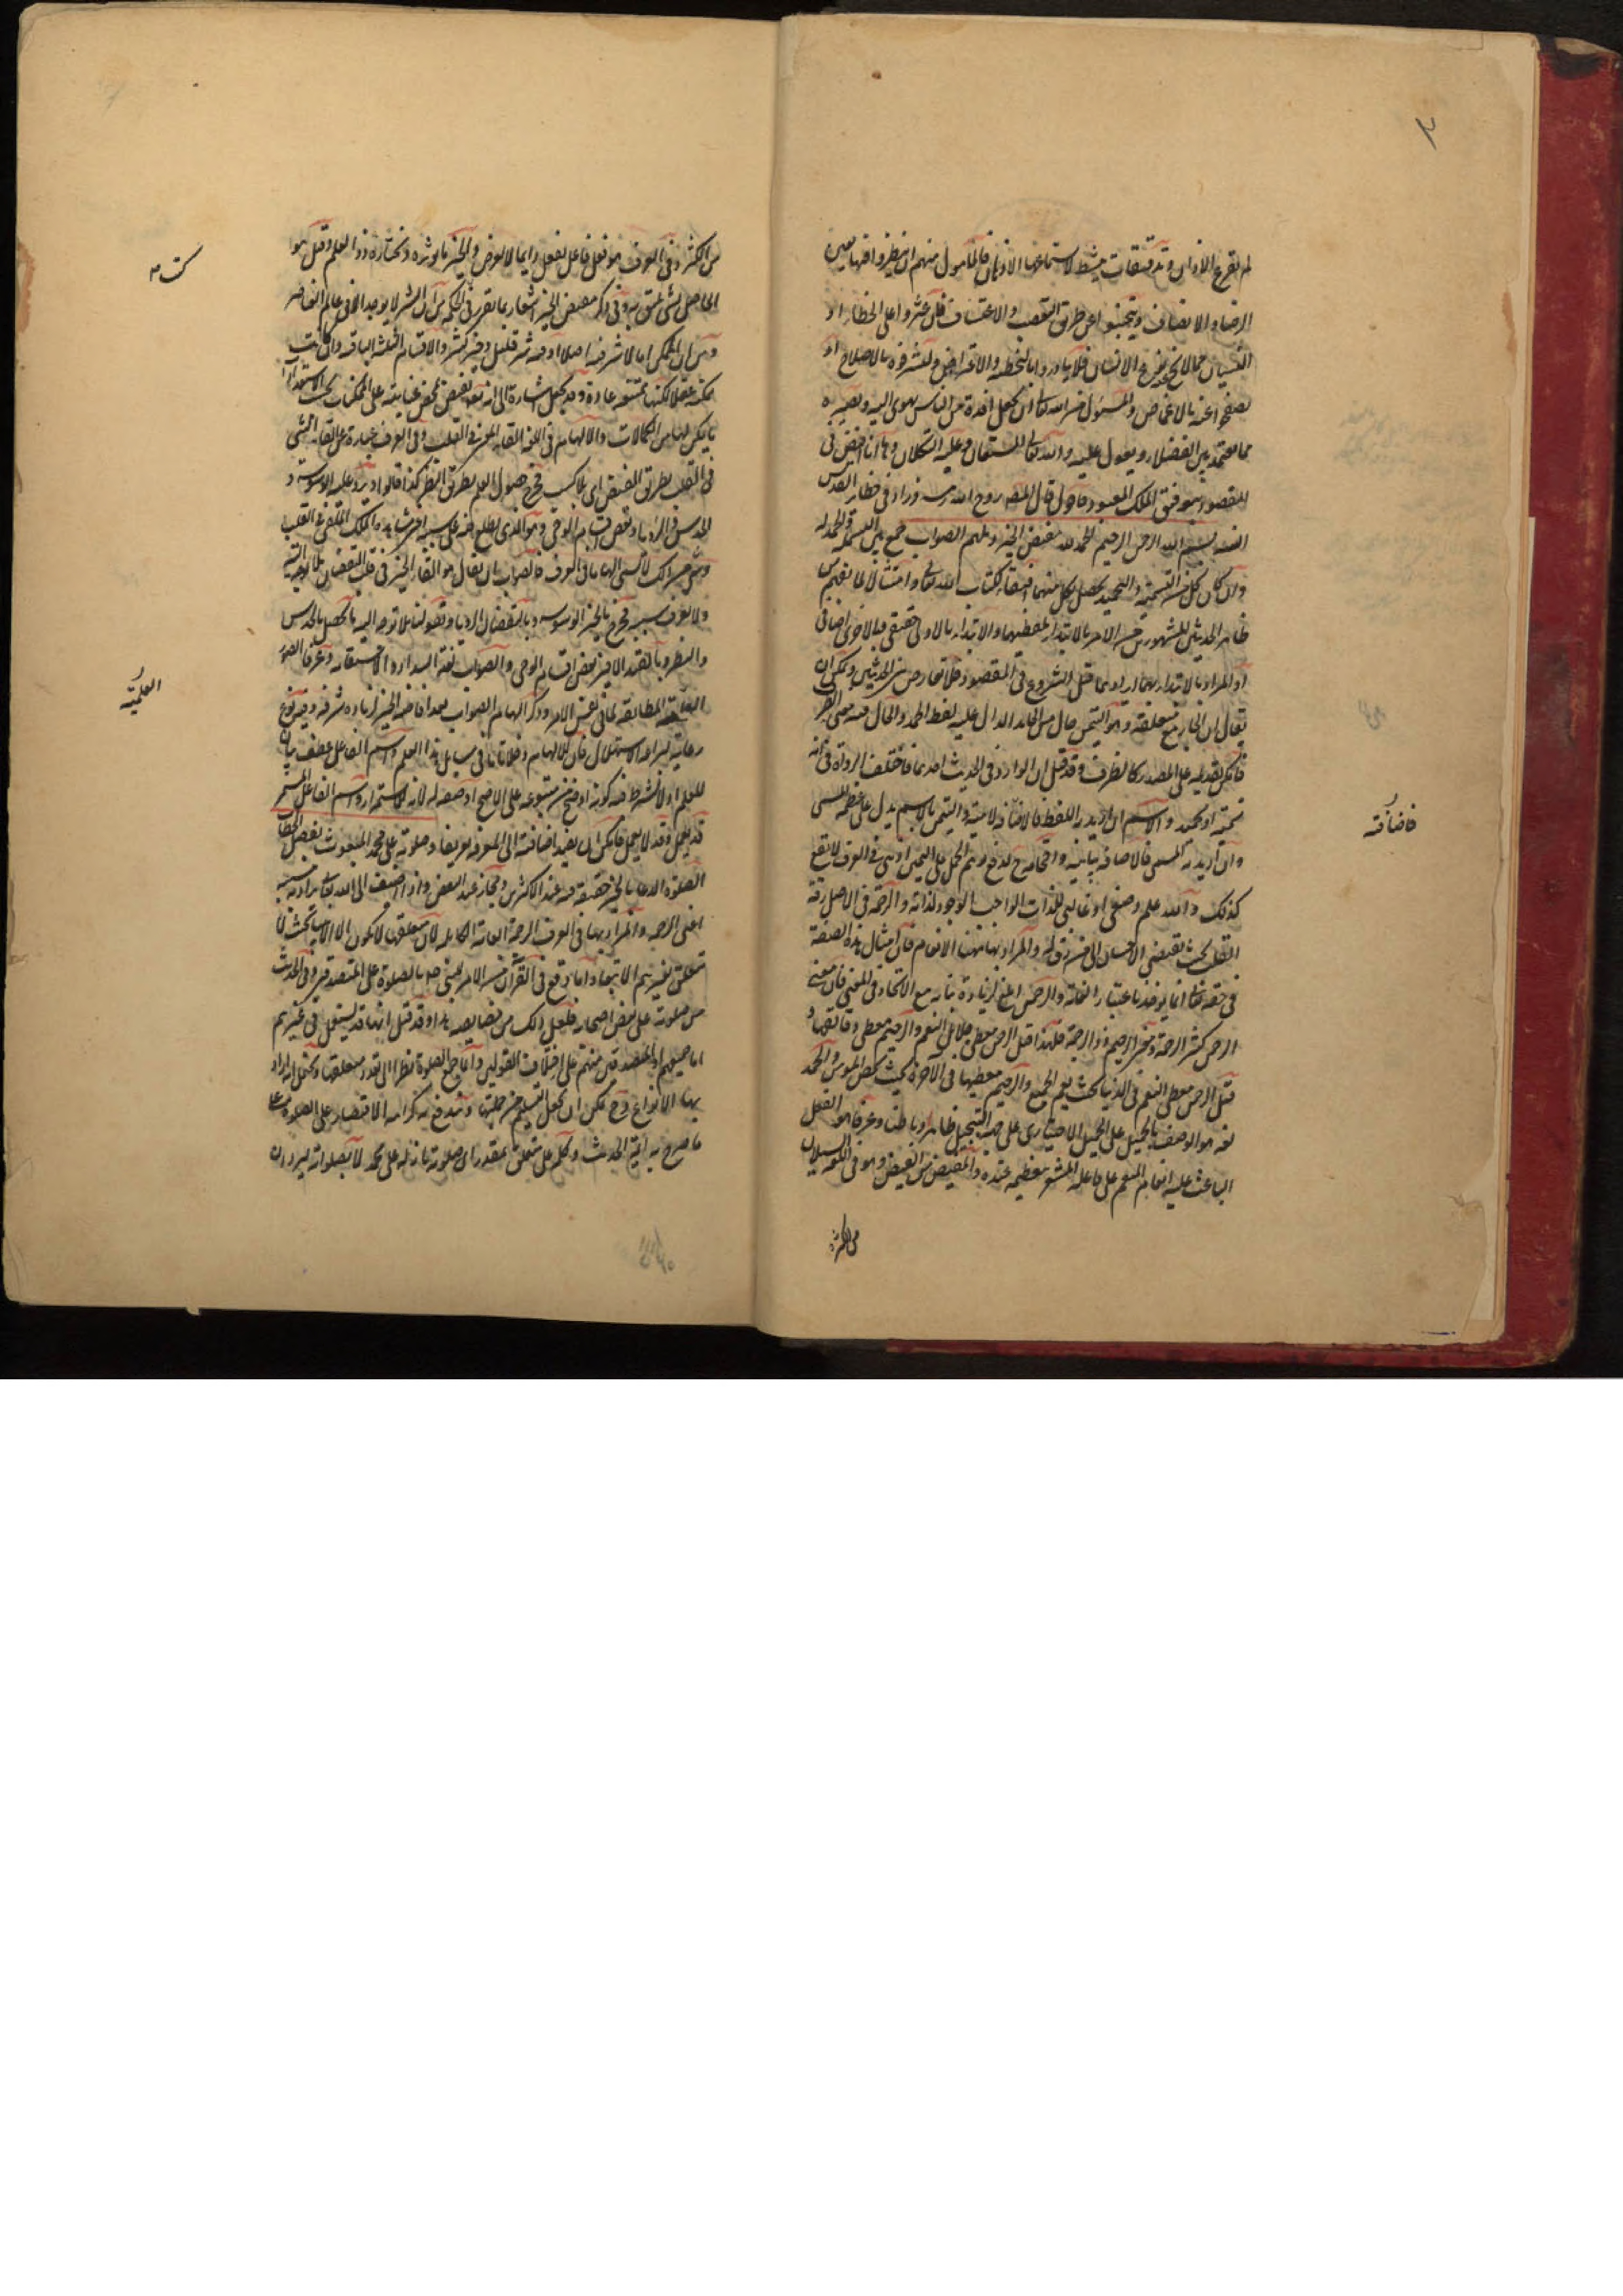 لم تقرع الآذان وتدقيقات ينشط لاستماعها الأذهان فالمأمول منهم ان ينظروا فيها بعين
الرضا والانصاف ويتجنبوا عن طريق التعصب والاعتساف فان عثروا على الخطاء او
النسيان مما لا يخلو عنه نوع الانسان فلا يبادروا بالتخطئة والاعتراض وليشرفوه بالاصلاح او
يصفحوا عنه بالاغماض والمسئول من الله تعالى ان يجعل افئدة من الناس تهوى اليه وتصيره
مما يعتمد بين الفضلاء ويعول عليه والله تعالى المستعان وعليه التكلان وها انا افيض فى
المقصود بتوفيق الملك المعبود فاقول قال المص روح الله رمسه وزاد فى حظاير القدس
انسه بسم الله الرحمن الرحيم الحمد لله مفيض الخير وملهم الصواب جمع بين البسملة والحمدلة
وان كان كل من التسمية والتحميد يحصل بكل منهما اقتفاء لكتاب الله تعالى وامتثالا لما يفهم من
ظاهر الحديثين المشهورين من الامر بالابتداء بلفظيهما والابتداء بالاولى حقيقى وبالاخرى اضافى
او المراد بالابتداء بهما ايرادهما قبل الشروع فى المقصود فلا تعارض بين الحديثين ويمكن ان
يقال ان الجار مع متعلقه وهو التيمن حال من الحامد الدال عليه لفظ الحمد والحال فيه معنى الظرف
فامكن تقديمه على المصدر كالظرف وقد قيل ان الوارد فى الحديث احدهما فاختلف الرواة فى انه
تسمية او تحميد والاسم ان اريد به اللفظ فالاضافة لامية والتيمن بالاسم يدل على عظمة المسمى
وان اريد به المسمى فالاضافة بيانية واقحامه ح لدفع توهم الحمل على اليمين اذ هى فى العرف لا يقع
كذلك والله علم وصفى او غالبى للذات الواجب الوجود لذاته والرحمة فى الاصل رقة
القلب بحيث يقتضى الاحسان الى من رق له والمراد بها ههنا الانعام فان امثال هذه الصفة
فى حقه تعالى انما يؤخذ باعتبار الغاية والرحمن ابلغ لزيادة بنائه مع الاتحاد فى المعنى فان معنى
الرحمن كثير الرحمة ومعنى الرحيم ذو الرحمة فلهذا قيل الرحمن معطى جلايل النعم والرحيم معطى دقائقها و
قيل الرحمن معطى النعم فى الدنيا بحيث يعم الجميع والرحيم معطيها فى الآخرة بحيث يخص المؤمنين والحمد
لغة هو الوصف بالجميل على الجميل الاختيارى على جهة التبجيل ظاهرا وباطنا وعرفا هو الفعل
الباعث عليه انعام المنعم على فاعله المشعر بتعظيمه عنده والمفيض من الفيض وهو فى اللغة السيلان
من الكثرة
فاضافته
من الكثرة وفى العرف هو فعل فاعل يفعل دايما لا لعوض والخير ما يؤثره ويختاره ذوو العلم وقيل هو
الحاصل لشئ لايق به وفى ذكر مفيض الخير اشعار بما تقرر فى الحكمة من ان الشر لا يوجد الا فى عالم العناصر
ومن ان الممكن اما لا شر فيه اصلا او فيه شر قليل وخير كثير والاقسام الثلثة الباقية وان كانت
ممكنة عقلا لكنها ممتنعة عادة وقد يجعل اشارة الى انه تعالى يفيض بمحض عنايته على الممكنات بحسب الاستعدادات
ما يمكن لها من الكمالات والالهام فى اللغة القاء المعنى فى القلب وفى العرف عبارة عن القاء الشئ
فى القلب بطريق الفيض اى بلا كسب فخرج حصول العلم بطريق النظر كذا قالوا ويرد عليه الوسوسة و
الحدس والرؤيا وبعض اقسام الوحى وهو الذى يطلع منه على سببه اعنى مشاهدة الملك الملقى فى القلب
ومن ح ذلك لا تسمى الهاما فى العرف فالصواب ان يقال هو القاء الخير فى قلب اليقظان بلا توجه اليه
ولا يعرف سببه فخرج بالخير الوسوسة وباليقظان الرؤيا وبقولنا بلا توجه اليه ما يحصل بالحدس
والنظر وبالقيد الاخير بعض اقسام الوحى والصواب لغة السداد والاستقامة وعرفا الصورة
العلمية المطابقة لما فى نفس الامر وذكر الهام الصواب بعد افاضة الخير لزيادة شرفه وفيه نوع
رعاية لبراعة الاستهلال فان للالهام دخلا تاما فى مسايل هذا العلم واسم الفاعل عطف بيان
للعلم اذ لا يشترط فيه كونه اوضح من متبوعه على الاصح او صفة له لانه للاستمرار واسم الفاعل المستمر
قد يعمل وقد لا يعمل فامكن ان يفيد اضافته الى المعرفة تعريفا وصلوته على محمد المبعوث بفصل الخطاب
الصلوة الدعاء بالخير حقيقة فيه عند الاكثرين ومجاز عند البعض واذا اضيف الى الله تعالى يراد به مسببه
اعنى الرحمة والمراد بها فى العرف الرحمة العامة الكاملة لان متعلقها لا يكون الا الانبياء بحيث لا
تتعلق بغيرهم الا تبعا واما ما وقع فى القرآن من الامر للنبى صلعم بالصلوة على المتصدقين وفى الحديث
من صلوته على بعض اصحابه فلعل ذلك من خصايصه هذا وقد قيل انها قد يستعمل فى غيرهم
اما جميعهم او المتصدقين منهم على اختلاف القولين واما جمع الصلوة نظرا الى تعدد متعلقها ويحتمل ان يراد
بها الانواع وح يمكن ان يجعل التسليم من جملتها ويندفع به كراهة الاقتصار على الصلوة على
ما صرح به ائمة الحديث وكلمة على متعلق بمقدر اى صلوته نازلة على محمد لا بصلواته ليرد ان
العلمية